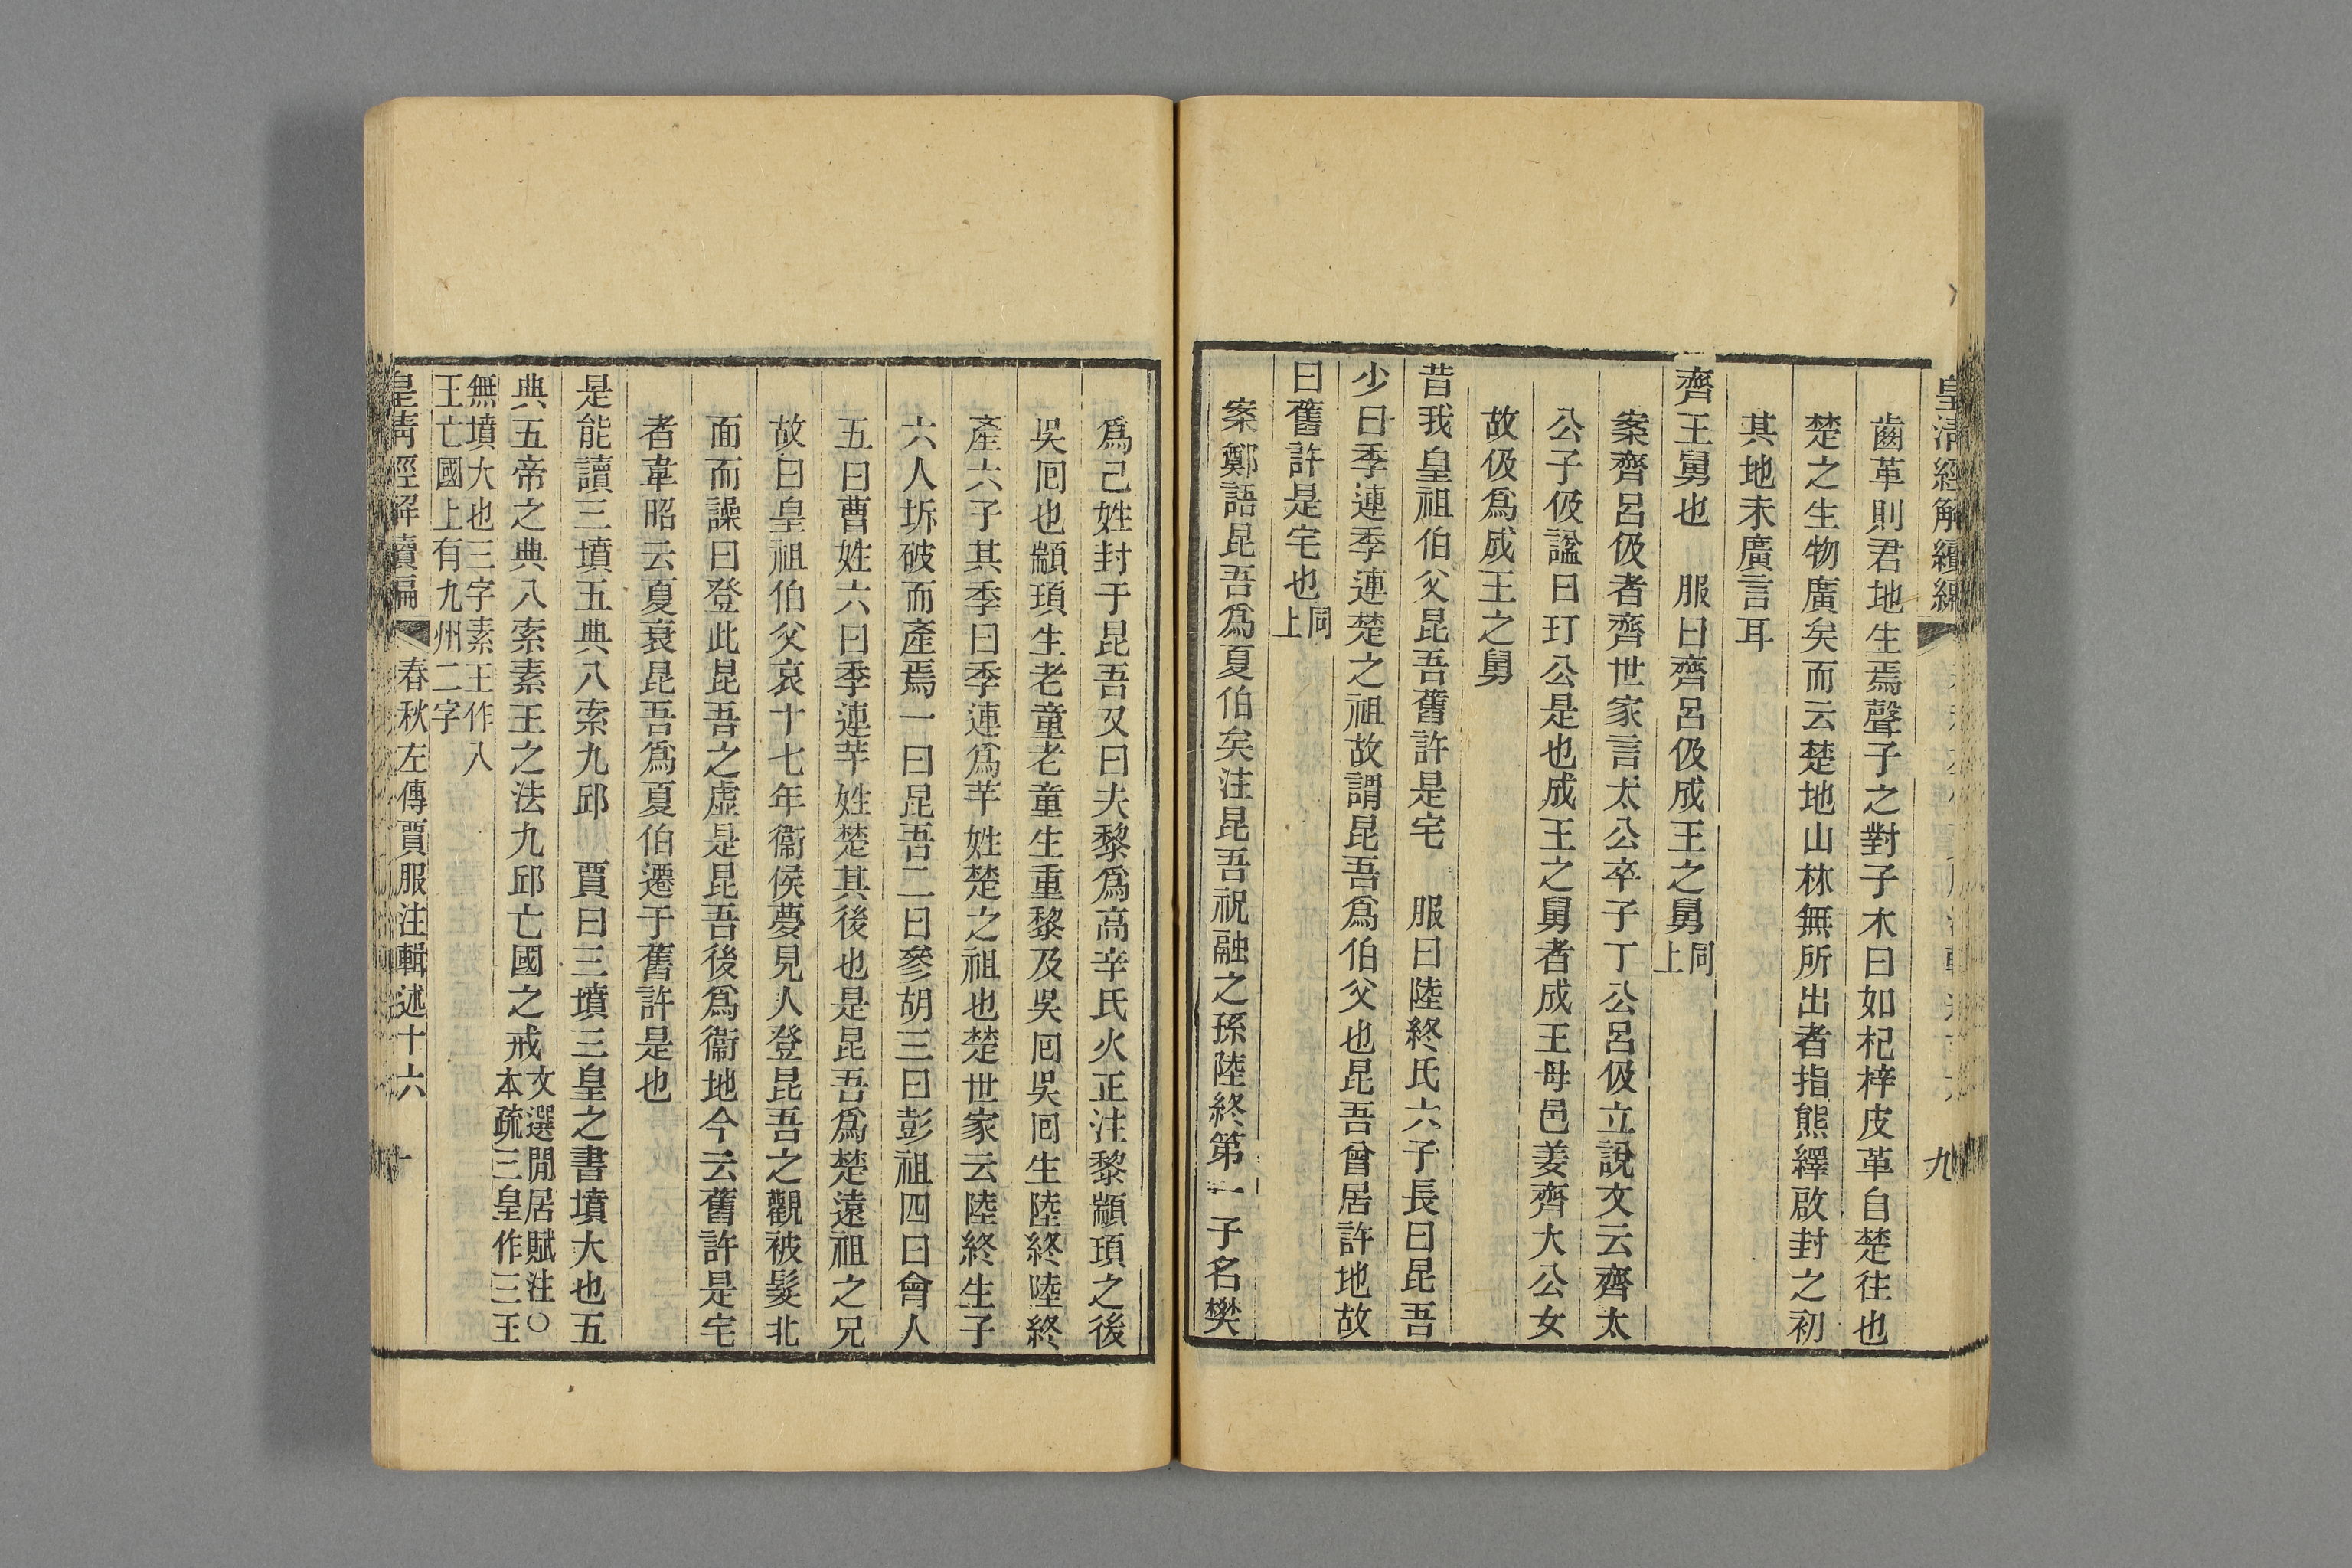 皇清經解續編
九
齒革則君地生焉聲子之對子木曰如杞梓皮革自楚往也
楚之生物廣矣而云楚地山林無所出者指熊繹啟封之初
其地未廣言耳
齊王舅也　服曰齊呂伋成王之舅同上
案齊呂伋者齊世家言太公卒子丁公呂伋立說文云齊太
公子伋諡曰玎公是也成王之舅者成王母邑姜齊大公女
故伋爲成王之舅
昔我皇祖伯父昆吾舊許是宅　服曰陸終氏六子長曰昆吾
少曰季連季連楚之祖故謂昆吾爲伯父也昆吾曾居許地故
曰舊許是宅也同上
案鄭語昆吾爲夏伯矣注昆吾祝融之孫陸終第一子名樊
爲己姓封于昆吾又曰夫黎爲高辛氏火正注黎顓頊之後
吳回也顓頊生老童老童生重黎及吳回吳回生陸終陸終
產六子其季曰季連爲芊姓楚之祖也楚世家云陸終生子
六人坼破而產焉一曰昆吾二曰參胡三曰彭祖四曰會人
五曰曹姓六曰季連芊姓楚其後也是昆吾爲楚遠祖之兄
故曰皇祖伯父哀十七年衞侯夢見人登昆吾之觀被髮北
面而譟曰登此昆吾之虛是昆吾後爲衞地今云舊許是宅
者韋昭云夏衰昆吾爲夏伯遷于舊許是也
是能讀三墳五典八索九邱　賈曰三墳三皇之書墳大也五
典五帝之典八索素王之法九邱亡國之戒文選閒居賦注○
本疏三皇作三王
無墳大也三字素王作入
王亡國上有九州二字
皇清經解續編
春秋左傳賈服注輯述十六